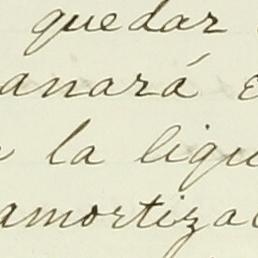 quedar
anará e
la liqu
amortizac